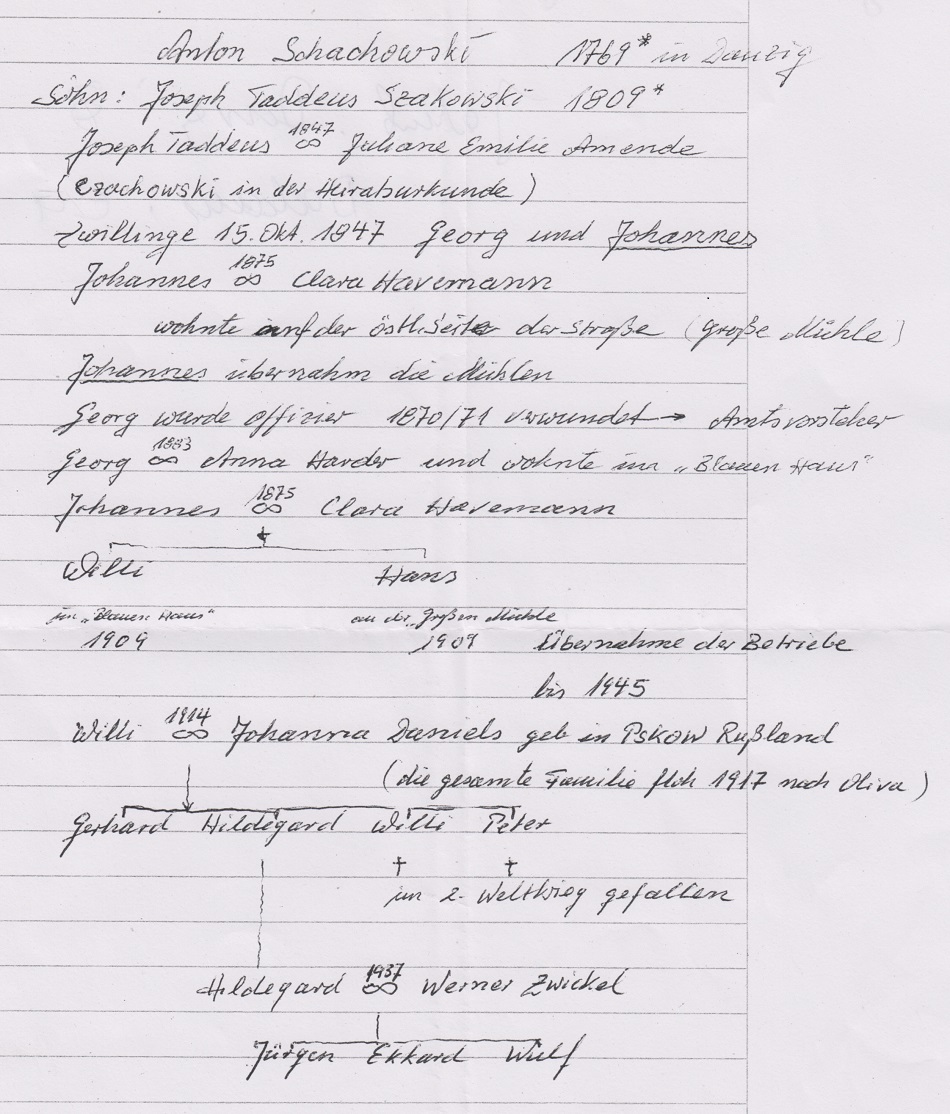 Anton Schachowski 1769* in Danzig
Sohn: Joseph Taddeus Szakowski 1809*
1847
Joseph Taddeus ∞ Juliane Emilie Amende
(Czachowski in der Heiratsurkunde)
Zwillinge 15. Okt. 1847 Georg und Johannes
1875
Johannes ∞ Clara Havemann
wohnte auf der östl. Seite der Straße (Große Mühle)
Johannes übernahm die Mühlen
Georg wurde Offizier 1870/71 verwundet → Amtsvorsteher
1883
Georg ∞ Anna Harder und wohnte im „Blauen Haus"
1875
Johannes ∞ Clara Havemann
Willi Hans
im „Blauen Haus" an der „Großen Mühle
1909 1909 Übernahme der Betriebe
bis 1945
1914
Willi ∞ Johanna Daniels geb in Pskow Rußland
(die gesamte Familie floh 1917 nach Oliva)
Gerhard Hildegard Willi Peter
† †
im 2. Weltkrieg gefallen
1937
Hildegard ∞ Werner Zwickel
Jürgen Ekkard Wulf